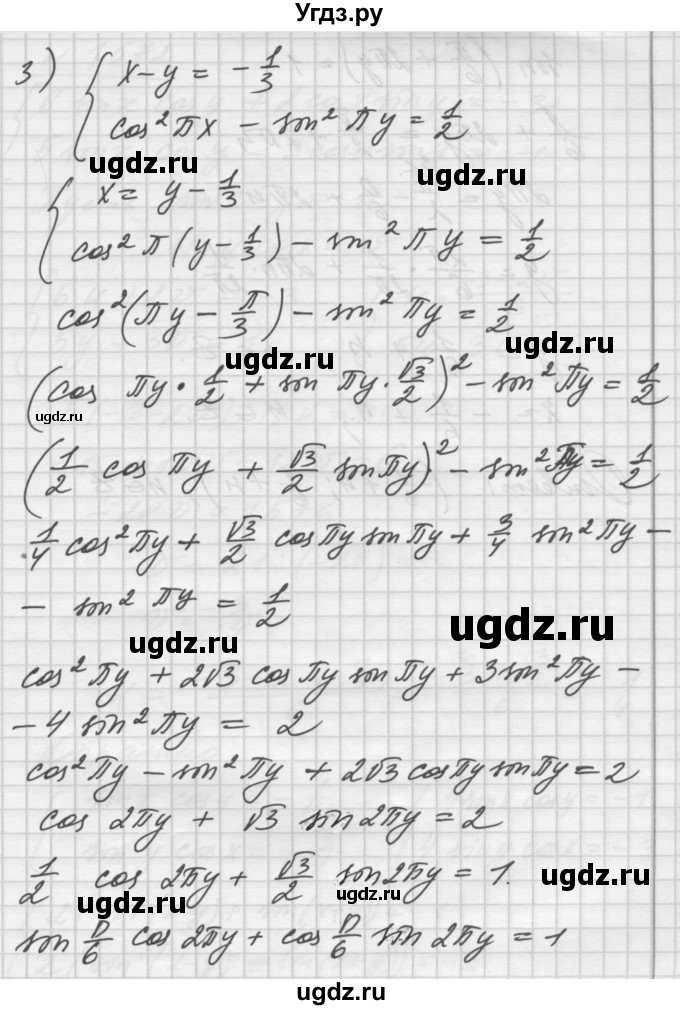 Угдз.ру
3) { x - y = -1/3
cos²πx - sin²πy = 1/2
ugdz.ru ugdz.ru
{ x = y - 1/3
cos²π(y - 1/3) - sin²πy = 1/2
cos²(πy - π/3) - sin²πy = 1/2
ugdz.ru ugdz.ru
(cos πy · 1/2 + sin πy · √3/2)² - sin²πy = 1/2
ugdz.ru ugdz.ru
(1/2 cos πy + √3/2 sin πy)² - sin²πy = 1/2
1/4 cos²πy + √3/2 cos πy sin πy + 3/4 sin²πy -
- sin²πy = 1/2
ugdz.ru ugdz.ru
cos²πy + 2√3 cos πy sin πy + 3 sin²πy -
- 4 sin²πy = 2
cos²πy - sin²πy + 2√3 cos πy sin πy = 2
cos 2πy + √3 sin 2πy = 2
1/2 cos 2πy + √3/2 sin 2πy = 1.
ugdz.ru ugdz.ru ugdz.ru
sin π/6 cos 2πy + cos π/6 sin 2πy = 1
ugdz.ru